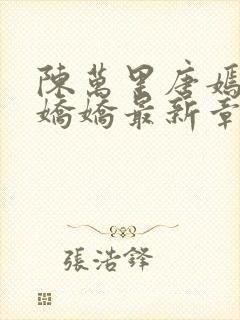 陳萬里唐嫣
嬌嬌最新章
張浩鋒